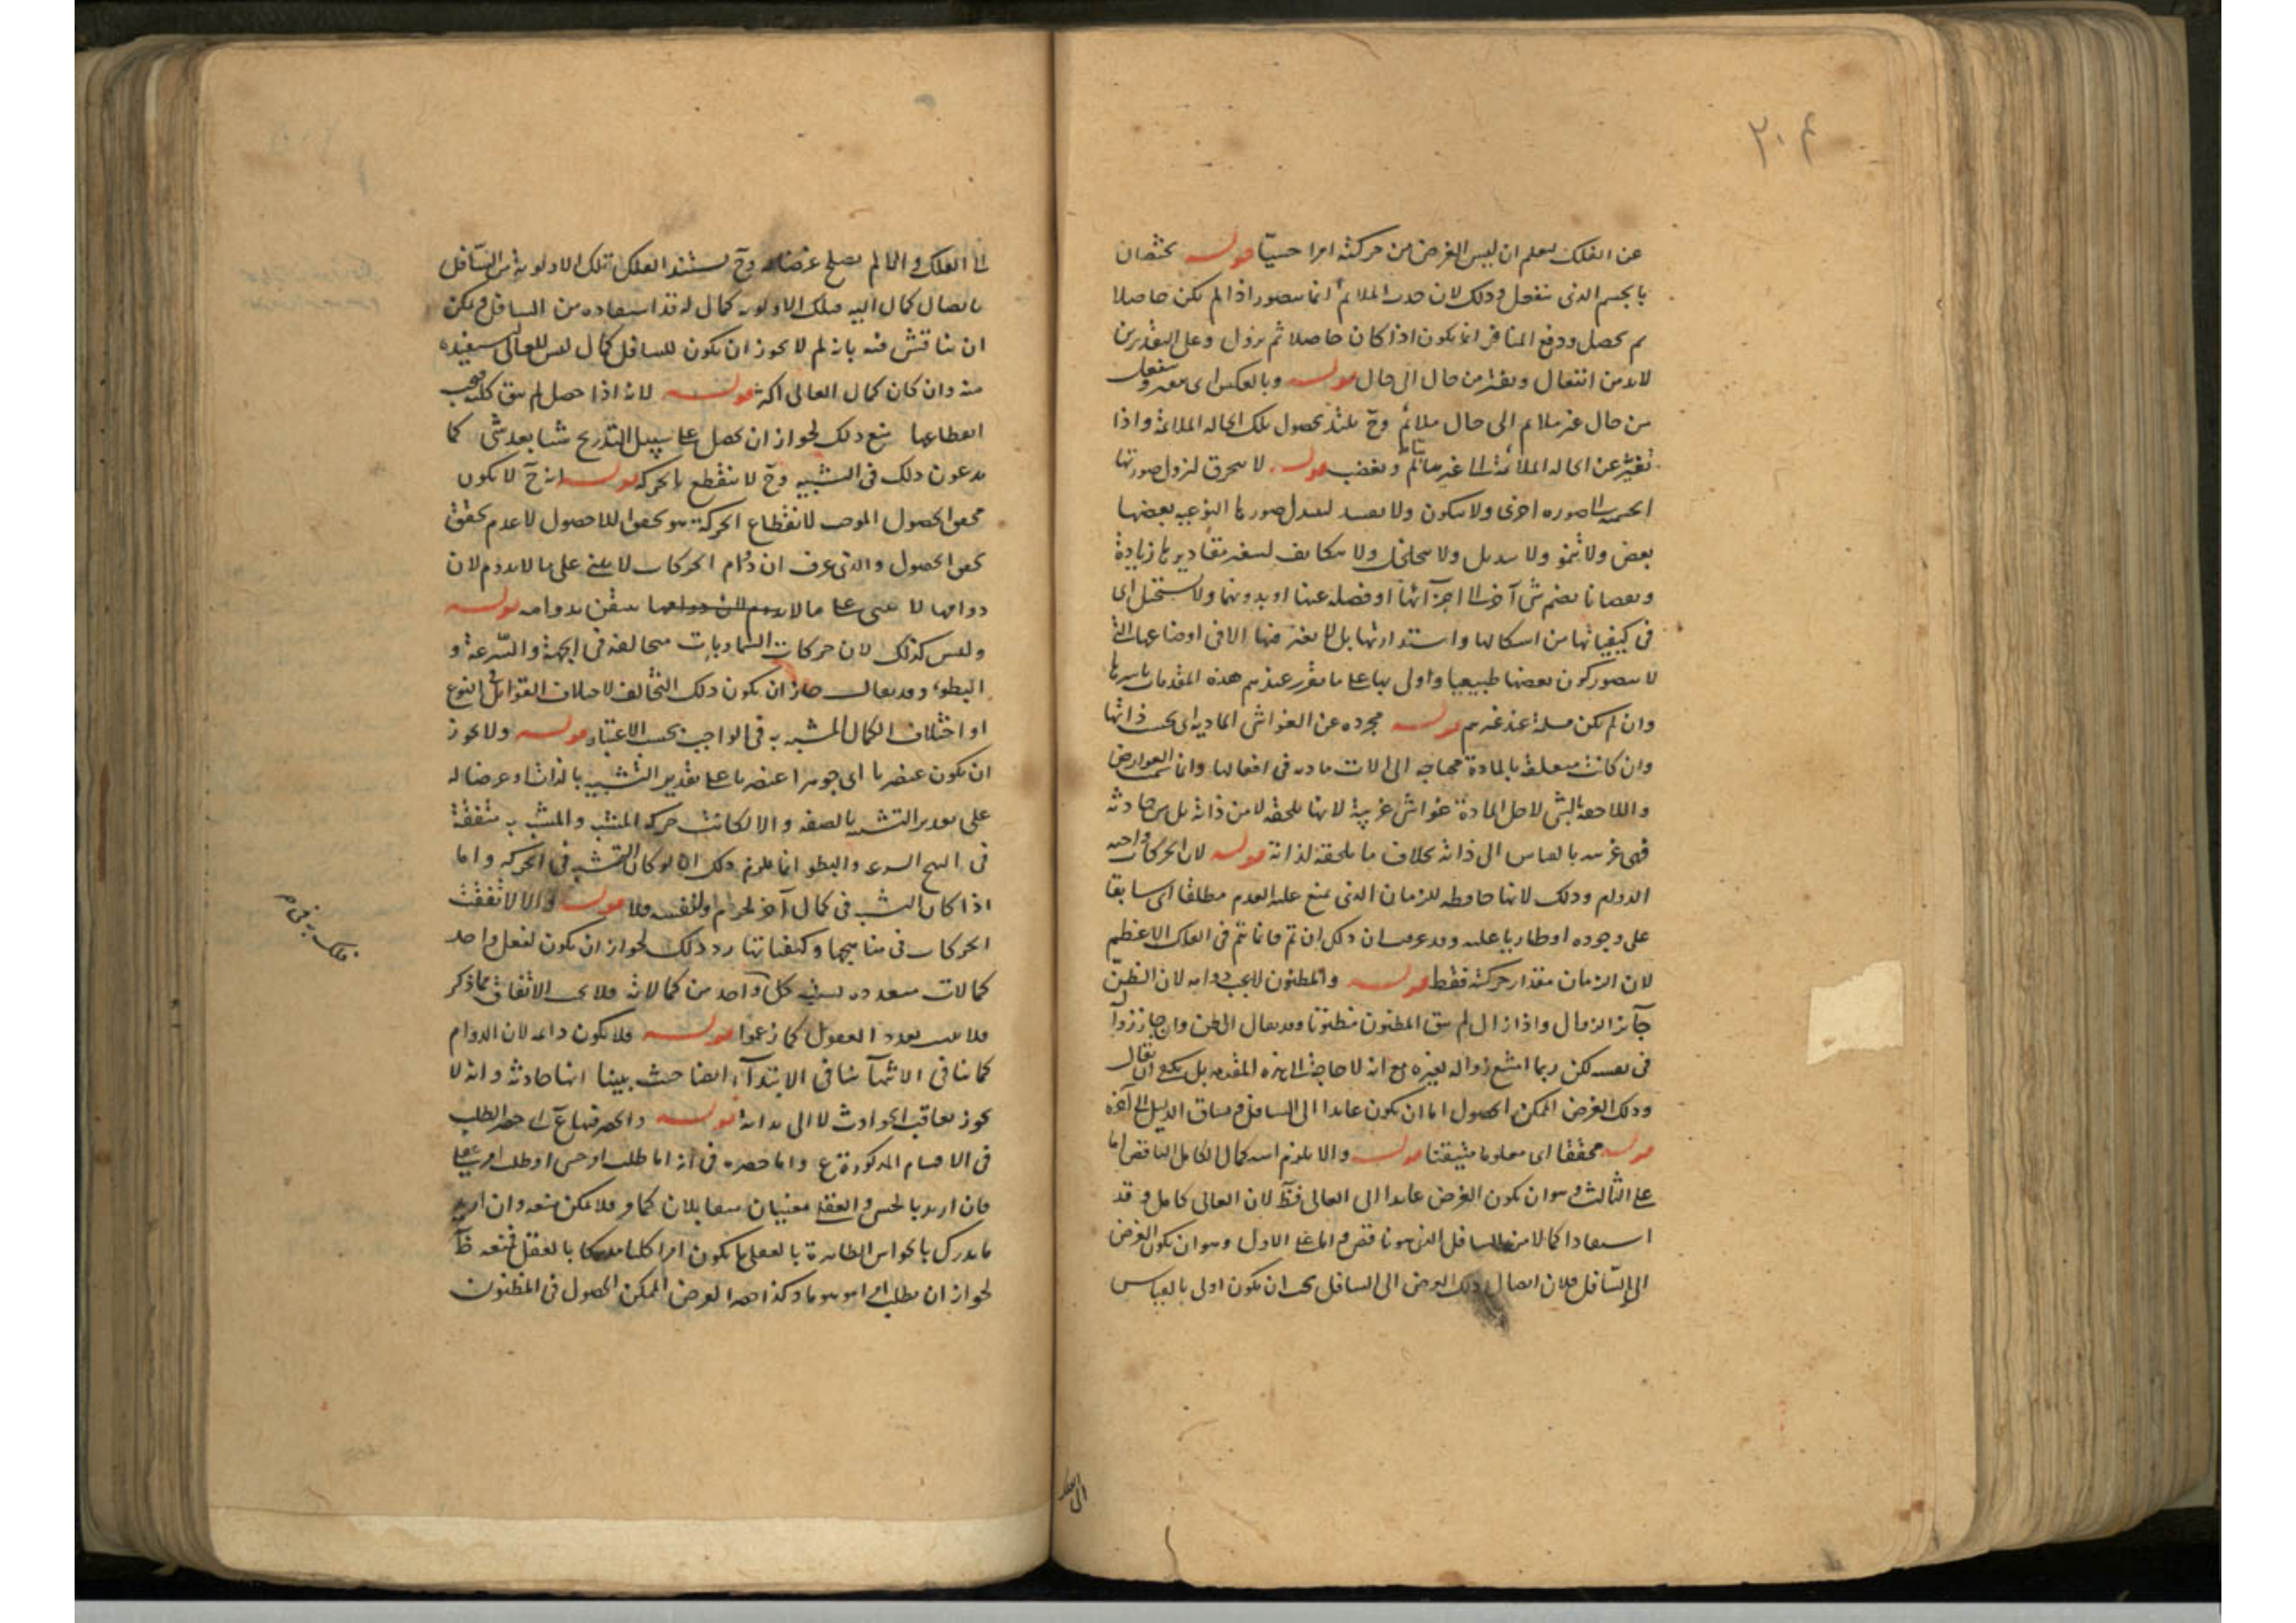 ٢٠٤
عن الفلك لعلم ان ليس الغرض من حركته امرا حسيا قوله يختصان
بالجسم الذى ينفعل وذلك لان جذب الملائم انما يتصور اذا لم يكن حاصلا
ثم يحصل ودفع المنافر انما يكون اذا كان حاصلا ثم يزول وعلى التقديرين
لابد من انتقال وتغير من حال الى حال قوله وبالعكس اى
من حال غير ملايم الى حال ملائم وح يلتذ بحصول تلك الحاله الملائمة واذا
تغير عن الحاله الملائمة الى غير ملائم وبغضب قوله لا ينخرق لتزول صورتها
الجسمية الى صوره اخرى ولا يتكون ولا يفسد لتبدل صورها النوعيه بعضها
ببعض ولا ينمو ولا يذبل ولا يتخلخل ولا يتكاثف لتغير مقاديرها زيادة
ونقصانا بضم شئ آخر الى اجزائها او فصله عنها او بدونهما ولا يستحيل اى
فى كيفياتها من اشكالها واستدارتها بل لا تغير فيها الا فى اوضاعها التى
لا يتصور كون بعضها طبيعيا واولى بها على ما تقرر عندهم هذه المقدمات باسرها
وان لم يكن مسلمة عند غيرهم قوله مجرده عن الغواشى الماديه اى بحسب ذاتها
وان كانت متعلقة بالمادة محتاجه الى الات ماديه فى افعالها وانما سمى العوارض
واللاحقة للشئ لاجل المادة غواشى غريبة لانها تلحقه لا من ذاته بل من
فهى غريبه بالقياس الى ذاته بخلاف ما يلحقه لذاته قوله لان الحركات واجبه
الدوام وذلك لانها حافظه للزمان الذى يمنع عليه العدم مطلقا اى سابقا
على وجوده او طاريا عليه وقد عرفت ان ذلك ان تم فانما تم فى الفلك الاعظم
لان الزمان مقدار حركته فقط قوله والمظنون لا يجب دوامه لان الظن
جائز الزوال واذا زال لم يبق المظنون مظنونا وقد يقال الظن وان جاز زواله
فى نفسه لكن ربما امتنع زواله لغيره مع انه لا حاجة الى هذه المقدمه بل يكفى ان يقال
وذلك الغرض الممكن الحصول اما ان يكون عايدا الى السافل ويساق الدليل الى آخره
قوله محققا اى معلوما متيقنا قوله والا يلزم استكمال الكامل بالناقص اما
على الثالث وهو ان يكون الغرض عايدا الى العالى فظ لان العالى كامل وقد
استفادا كمالا من السافل الذى هو ناقص واما على الاول وهو ان يكون الغرض
الى السافل فلان ايصال ذلك الغرض الى السافل يجب ان يكون اولى بالقياس
الى الفلك
الى الفلك والا لم يصلح غرضا له وح يستفيد الفلك تلك الاولوية من السافل
بايصال كمال اليه فتلك الاولويه كمال له قد استفاده من السافل ويمكن
ان يناقش فيه بانه لم لا يجوز ان يكون للسافل كمال ليس للعالى يستفيده
منه وان كان كمال العالى اكثر قوله لانه اذا حصل لم يبق طلبه فيجب
انقطاعها يمنع ذلك لجواز ان يحصل على سبيل التدريج شيا بعد شئ كما
يدعون ذلك فى التشبيه وح لا ينقطع بالحركة قوله انه ح لا يكون
تحقق الحصول الموجب لانقطاع الحركة هو تحقق اللاحصول لا عدم تحقق
تحقق الحصول والذى عرف ان دوام الحركات لا يبنى على ما لا يدوم لان
دوامها لا يبنى على ما لا يدوم لان دوامها يتيقن بدوامه قوله
وليس كذلك لان حركات السماويات متخالفه فى الجهة والسرعة و
البطوء وقد يقال جاز ان يكون ذلك التخالف لاختلاف القوابل فى النوع
او اختلاف الكمال المتشبه به فى الواجب بحسب الاعتبار قوله ولا يجوز
ان يكون عنصريا اى جوهرا عنصريا على تقدير التشبيه بالذات او عرضا له
على تقدير التشبه بالصفه والا لكانت حركة المتشبه والمتشبه به متفقة
فى النهج السرعه والبطو انما يلزم ذلك ان لو كان التشبه فى الحركه واما
اذا كان التشبه فى كمال آخر لجرم او لنفسه فلا قوله والا لاتفقت
الحركات فى مناهجها وكيفياتها رد ذلك لجواز ان يكون لعقل واحد
كمالات متعدده يشبه كل واحد من كمالاته فلا يجب الاتفاق مما ذكر
فلا يجب تعدد العقول كما زعموا قوله فلا يكون دائمه لان الدوام
كما ينافى الانتهآء ينافى الابتدآء ايضا حيث بينا انها حادثه وانه لا
يجوز تعاقب الحوادث لا الى بدايه قوله والحصر فيها ع اى حصر الطلب
فى الاقسام المذكورة ع واما حصره فى انه اما طلب امر حسى او طلب امر عقلى
فان اريد بالحس والعقل معنيان متقابلان كما مر فلا يمكن منعه وان اريد
ما يدرك بالحواس الظاهرة بالعقل ما يكون امرا كليا مدركا بالعقل فمنعه ظ
لجواز ان يطلب امرا موهوما وكذا حصر الغرض الممكن الحصول فى المظنون